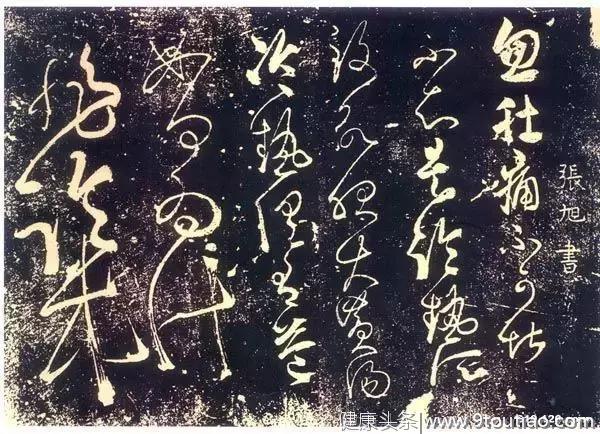 張旭書
忽肚痛不可堪
不知是冷熱所
致欲服大黃湯
冷熱俱有益
如何為計
非臨牀
健康头条|www.9touhao.com